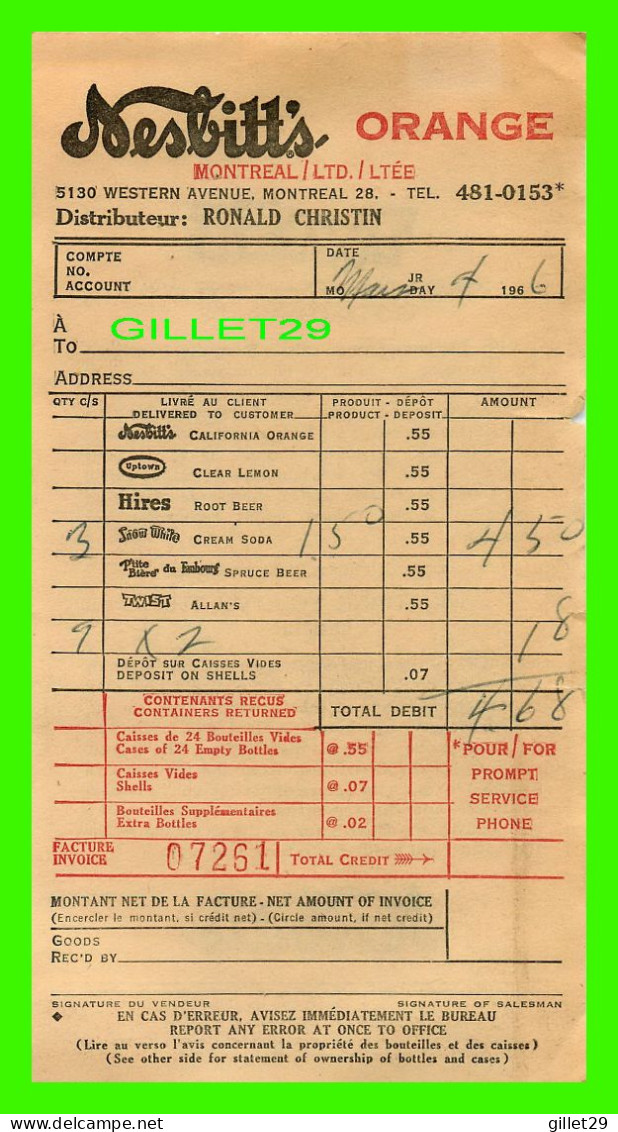 Nesbitt's ORANGE
MONTREAL / LTD. / LTÉE
5130 WESTERN AVENUE, MONTREAL 28. - TEL. 481-0153*
Distributeur: RONALD CHRISTIN
COMPTE DATE
NO. JR
ACCOUNT MO DAY 4 1966
À GILLET29
TO
ADDRESS
QTY C/S LIVRÉ AU CLIENT PRODUIT - DÉPÔT AMOUNT
DELIVERED TO CUSTOMER PRODUCT - DEPOSIT
Nesbitt's CALIFORNIA ORANGE .55
Uptown CLEAR LEMON .55
Hires ROOT BEER .55
3 Snow White CREAM SODA 150 .55 4 50
P'tite Bière du Faubourg SPRUCE BEER .55
TWIST ALLAN'S .55
9 x 2 18
DÉPÔT SUR CAISSES VIDES
DEPOSIT ON SHELLS .07
CONTENANTS RECUS
CONTAINERS RETURNED TOTAL DEBIT 4 68
Caisses de 24 Bouteilles Vides
Cases of 24 Empty Bottles @ .55 *POUR / FOR
Caisses Vides PROMPT
Shells @ .07 SERVICE
Bouteilles Supplémentaires
Extra Bottles @ .02 PHONE
FACTURE
INVOICE 07261 TOTAL CREDIT
MONTANT NET DE LA FACTURE - NET AMOUNT OF INVOICE
(Encercler le montant, si crédit net) - (Circle amount, if net credit)
GOODS
REC'D BY
SIGNATURE DU VENDEUR SIGNATURE OF SALESMAN
◆ EN CAS D'ERREUR, AVISEZ IMMÉDIATEMENT LE BUREAU
REPORT ANY ERROR AT ONCE TO OFFICE
(Lire au verso l'avis concernant la propriété des bouteilles et des caisses)
(See other side for statement of ownership of bottles and cases)
delcampe.net gillet29